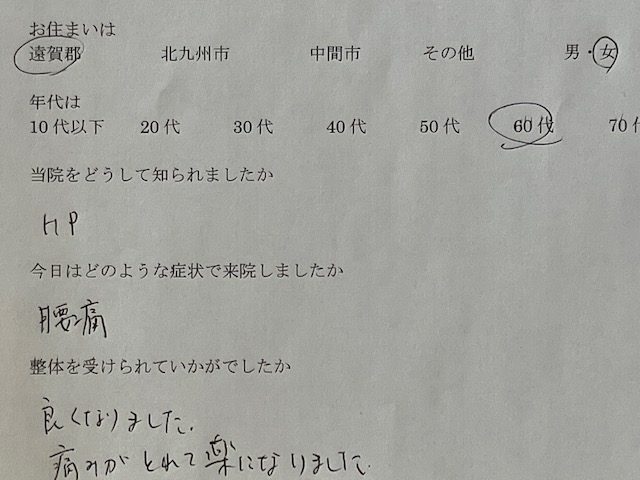 お住まいは
遠賀郡 北九州市 中間市 その他 男・女
年代は
10代以下 20代 30代 40代 50代 60代 70代
当院をどうして知られましたか
HP
今日はどのような症状で来院しましたか
腰痛
整体を受けられていかがでしたか
良くなりました.
痛みがとれて楽になりました.